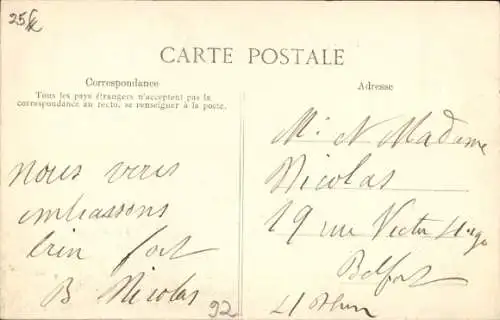 CARTE POSTALE
Correspondance
Tous les pays étrangers n'acceptent pas la
correspondance au recto, se renseigner à la poste.
nous vous
embrassons
bien fort
B Nicolas
92
Adresse
Mr et Madame
Nicolas
19 rue Victor Hugo
Belfort
Ht Rhin